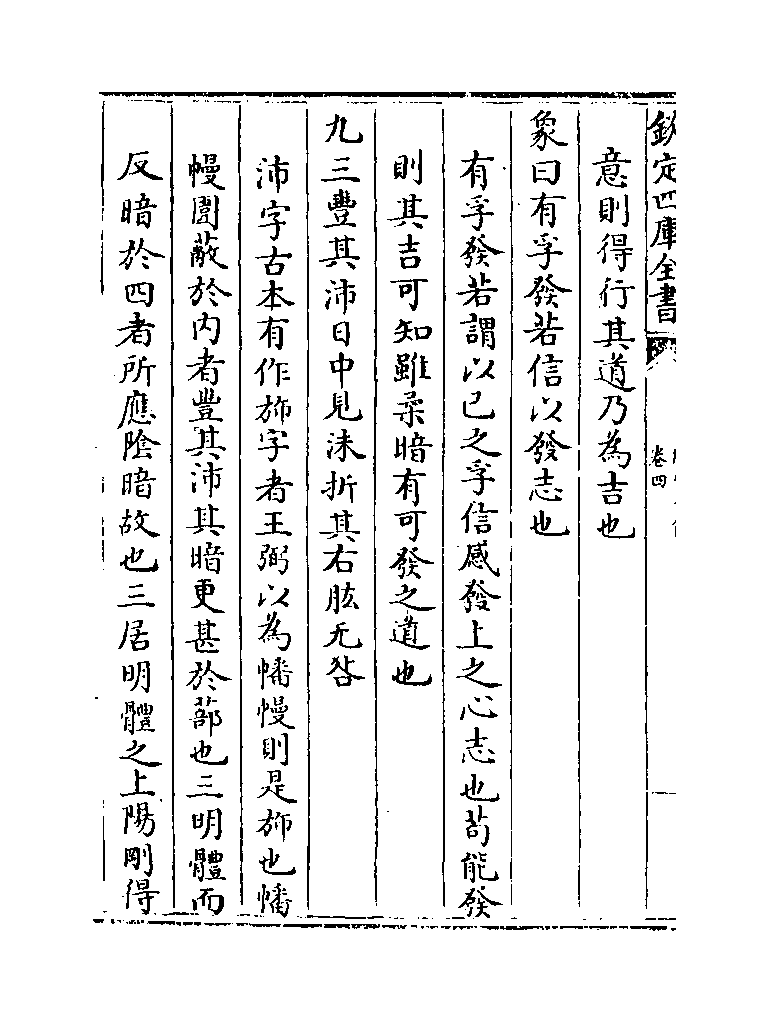 欽定四庫全書
卷四
意則得行其道乃為吉也
象曰有孚發若信以發志也
有孚發若謂以己之孚信感發上之心志也苟能發
則其吉可知雖柔暗有可發之道也
九三豐其沛日中見沬折其右肱无咎
沛字古本有作斾字者王弼以為幡幔則是斾也幡
幔圍蔽於内者豐其沛其暗更甚於蔀也三明體而
反暗於四者所應陰暗故也三居明體之上陽剛得